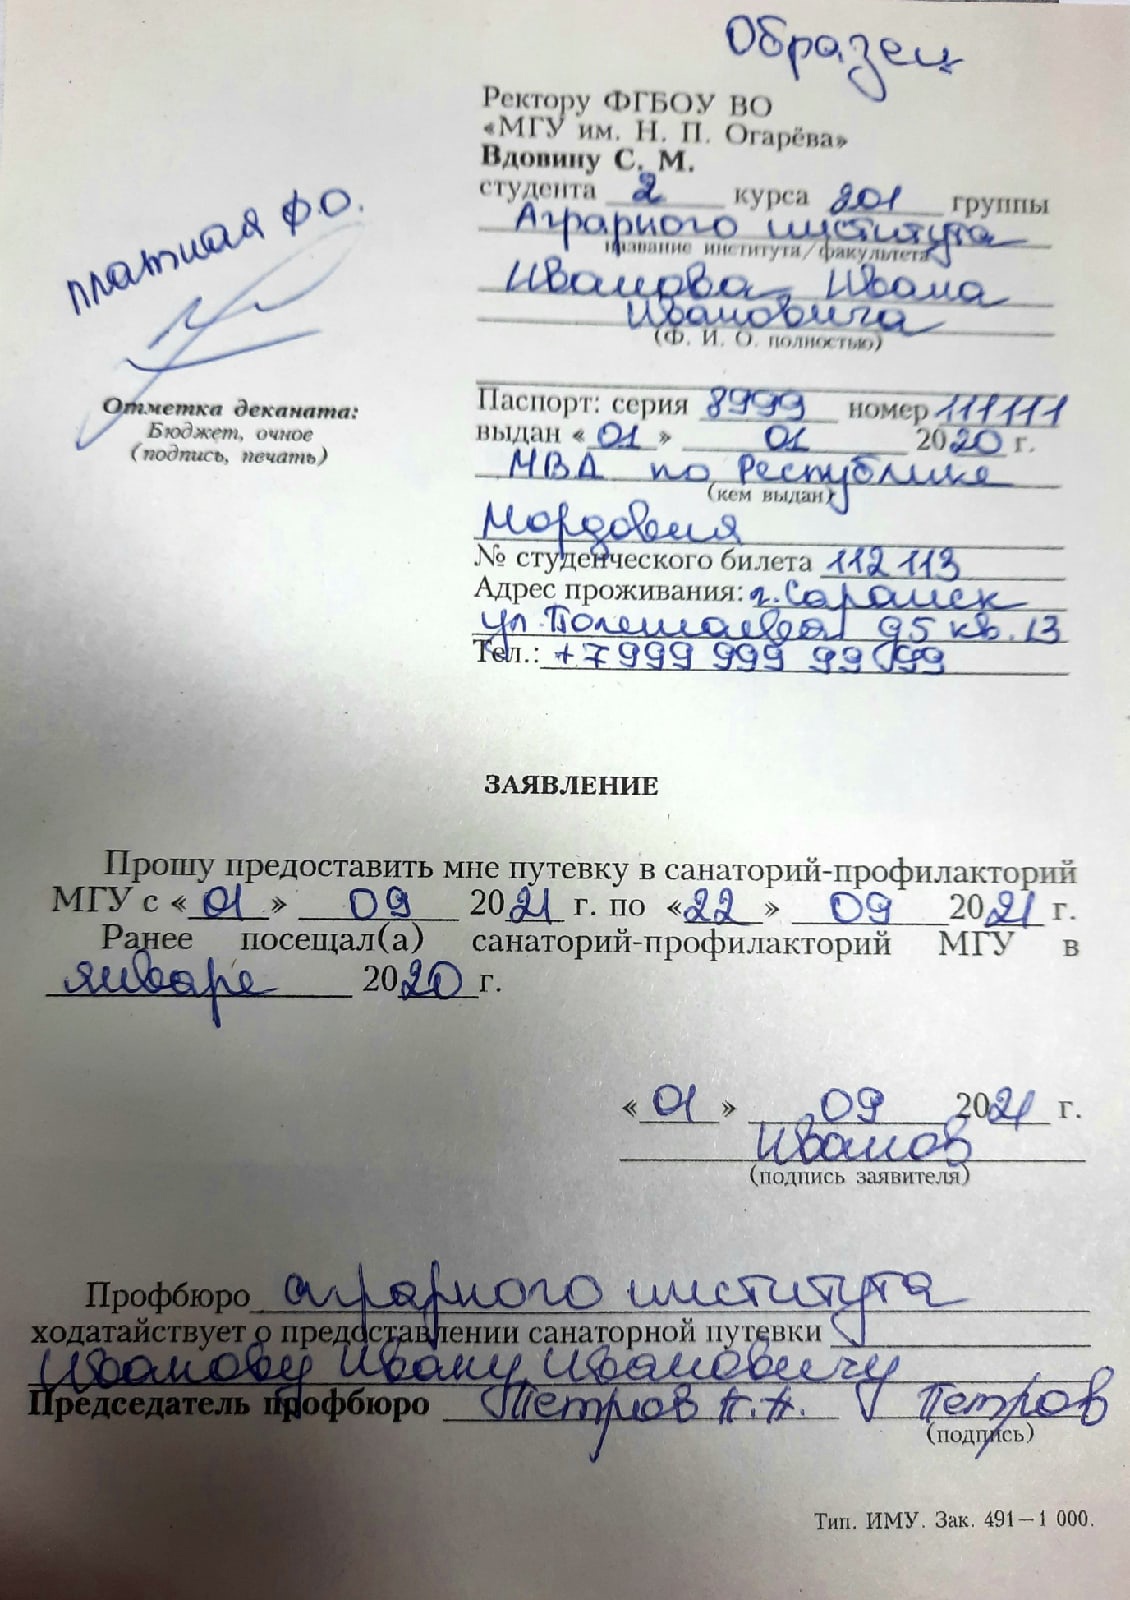 Образец
Ректору ФГБОУ ВО
«МГУ им. Н. П. Огарёва»
Вдовину С. М.
студента 2 курса 201 группы
Аграрного института
название института/факультета
Иванова Ивана
Ивановича
(Ф. И. О. полностью)
платная ф.о.
Отметка деканата:
Бюджет, очное
(подпись, печать)
Паспорт: серия 8999 номер 111111
выдан «01» 01 2020 г.
МВД по Республике
(кем выдан)
Мордовия
№ студенческого билета 112113
Адрес проживания: г. Саранск
ул. Полежаева 95 кв. 13
Тел.: +7 999 999 99 99
ЗАЯВЛЕНИЕ
Прошу предоставить мне путевку в санаторий-профилакторий
МГУ с «01» 09 2021 г. по «22» 09 2021 г.
Ранее посещал(а) санаторий-профилакторий МГУ в
январе 2020 г.
«01» 09 2021 г.
Иванов
(подпись заявителя)
Профбюро аграрного института
ходатайствует о предоставлении санаторной путевки
Иванову Ивану Ивановичу
Председатель профбюро Петров П.П. Петров
(подпись)
Тип. ИМУ. Зак. 491—1 000.